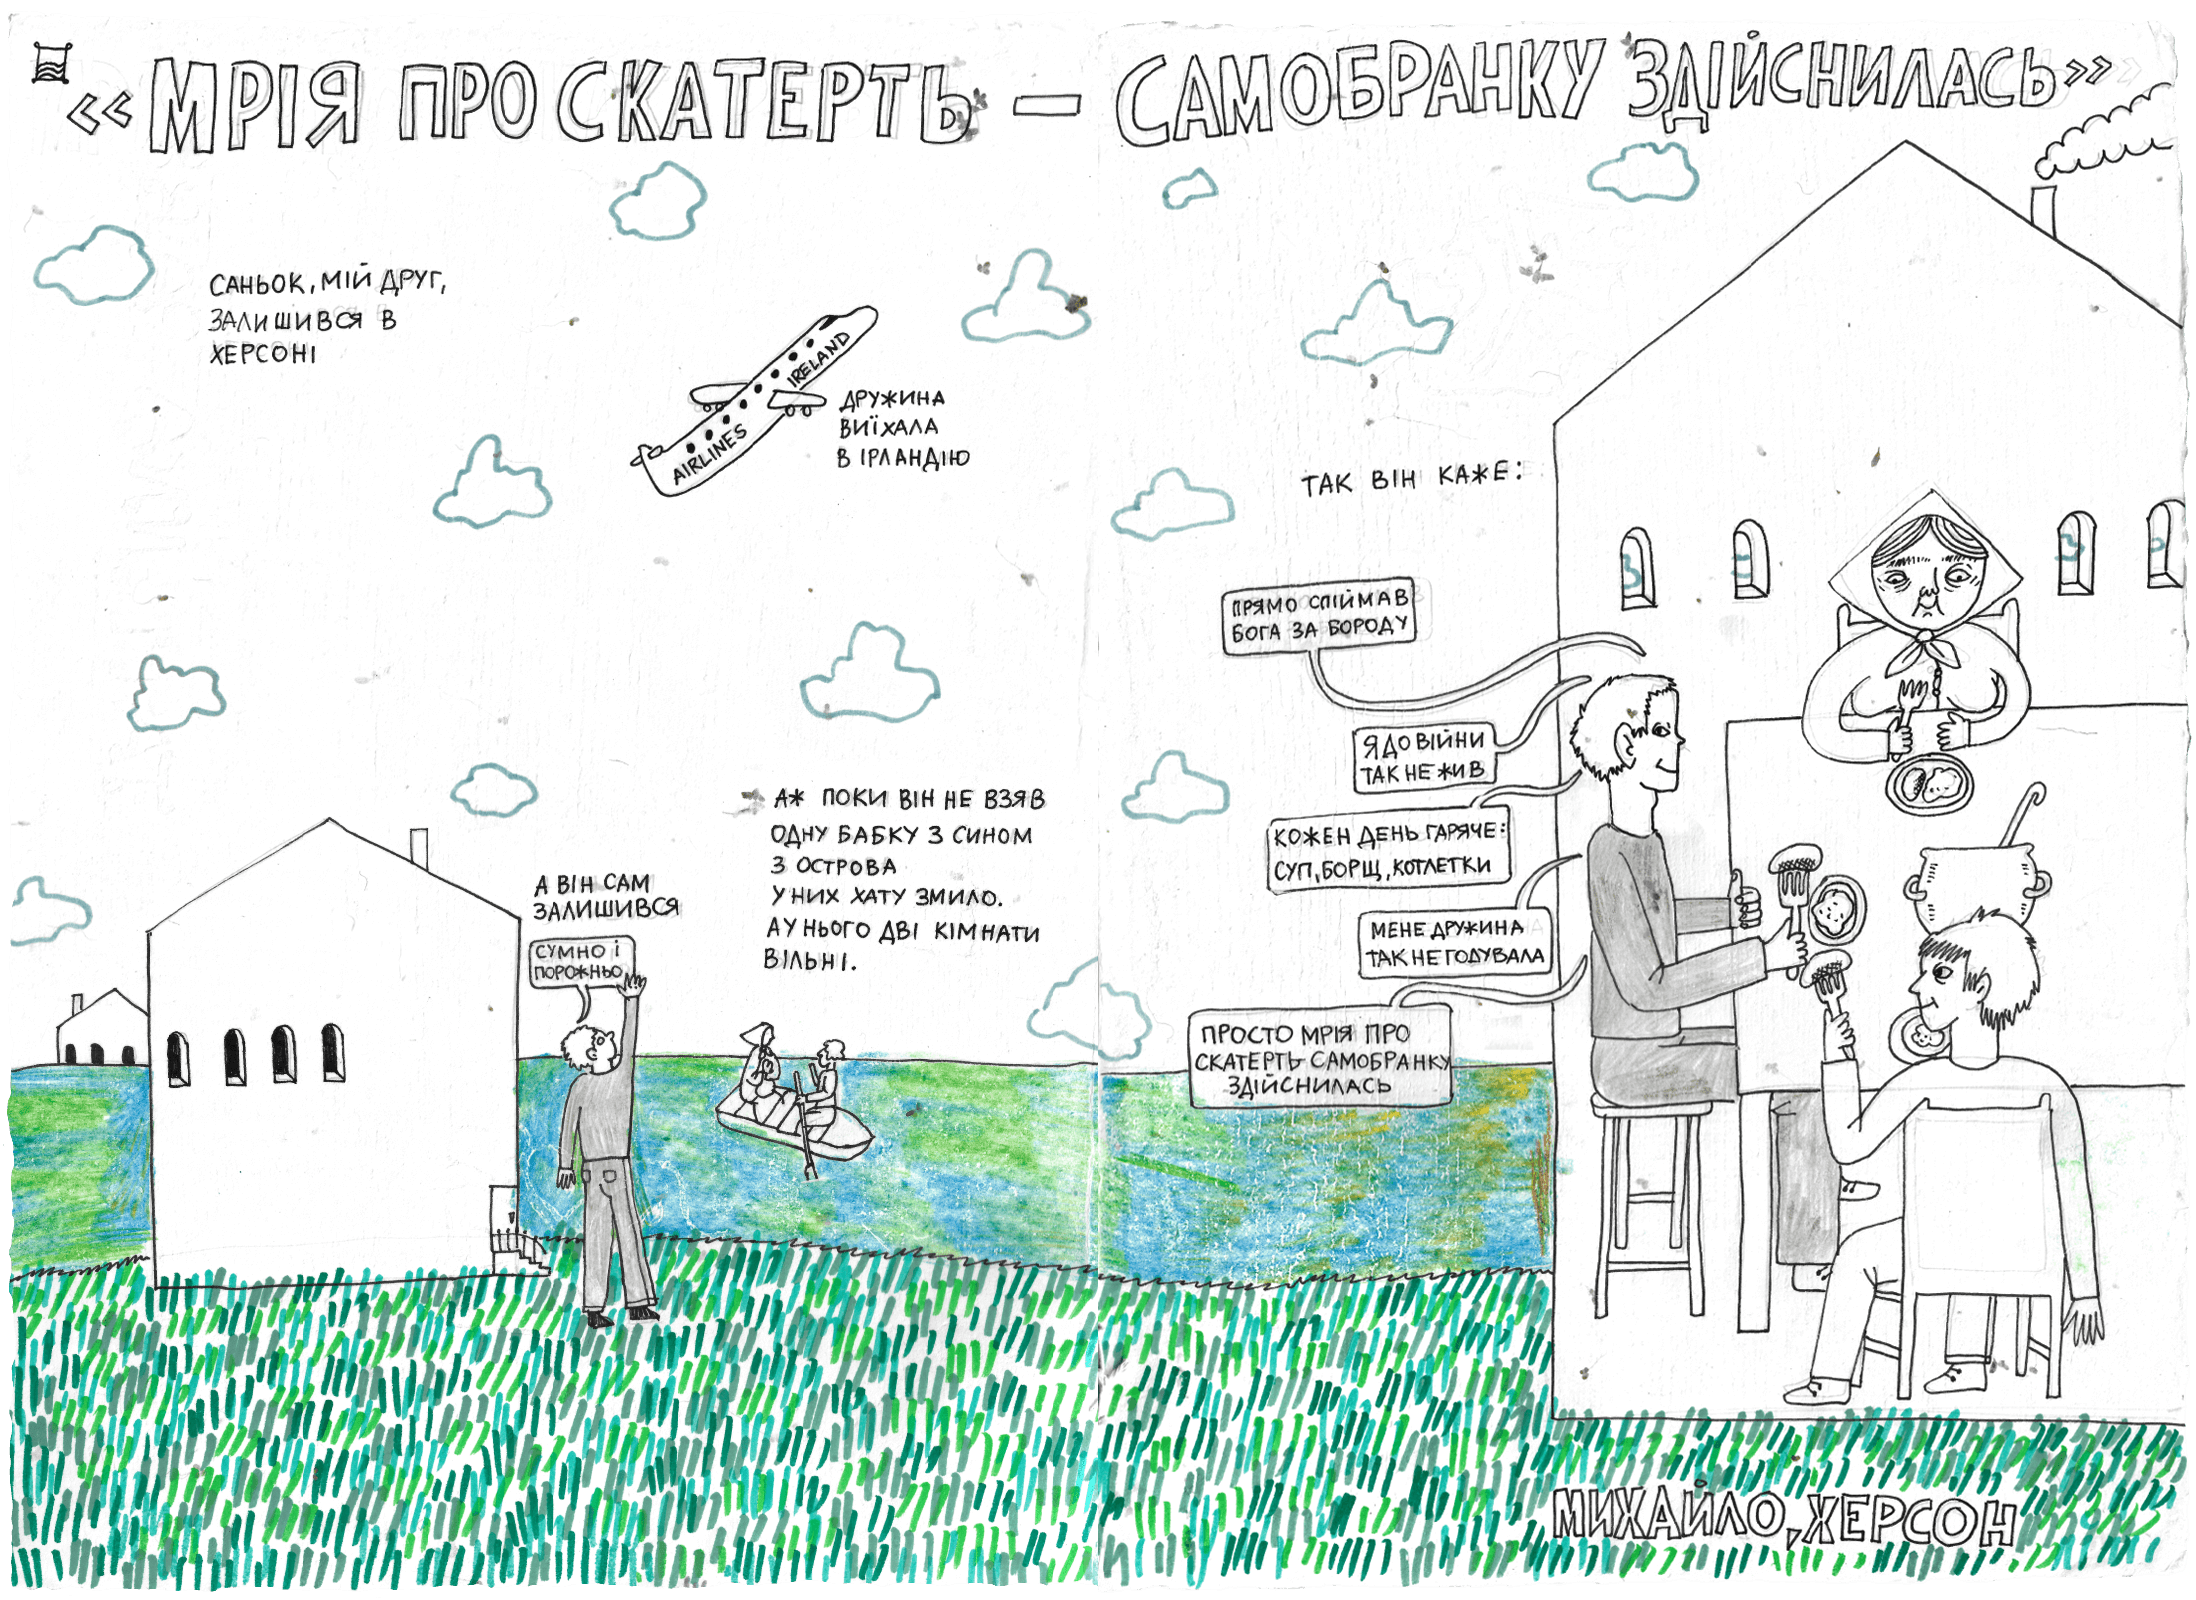 «МРІЯ ПРО СКАТЕРТЬ — САМОБРАНКУ ЗДІЙСНИЛАСЬ»
САНЬОК, МІЙ ДРУГ,
ЗАЛИШИВСЯ В
ХЕРСОНІ
IRELAND
AIRLINES
ДРУЖИНА
ВИЇХАЛА
В ІРЛАНДІЮ
А ВІН САМ
ЗАЛИШИВСЯ
СУМНО І
ПОРОЖНЬО
АЖ ПОКИ ВІН НЕ ВЗЯВ
ОДНУ БАБКУ З СИНОМ
З ОСТРОВА
У НИХ ХАТУ ЗМИЛО.
А У НЬОГО ДВІ КІМНАТИ
ВІЛЬНІ.
ТАК ВІН КАЖЕ:
ПРЯМО СПІЙМАВ
БОГА ЗА БОРОДУ
Я ДО ВІЙНИ
ТАК НЕ ЖИВ
КОЖЕН ДЕНЬ ГАРЯЧЕ:
СУП, БОРЩ, КОТЛЕТКИ
МЕНЕ ДРУЖИНА
ТАК НЕ ГОДУВАЛА
ПРОСТО МРІЯ ПРО
СКАТЕРТЬ САМОБРАНКУ
ЗДІЙСНИЛАСЬ
МИХАЙЛО, ХЕРСОН